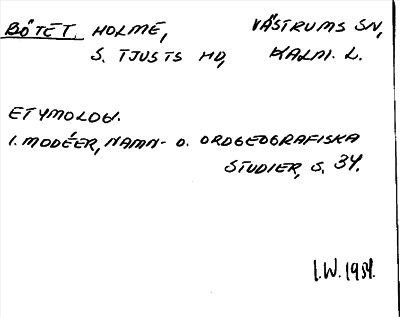 BÖTET. HOLME, VÄSTRUMS SN,
S. TJUSTS HD, KALM. L.
ETYMOLOGI.
I. MODÉER, NAMN- O. ORDGEOGRAFISKA
STUDIER, S. 34.
I.W. 1934.